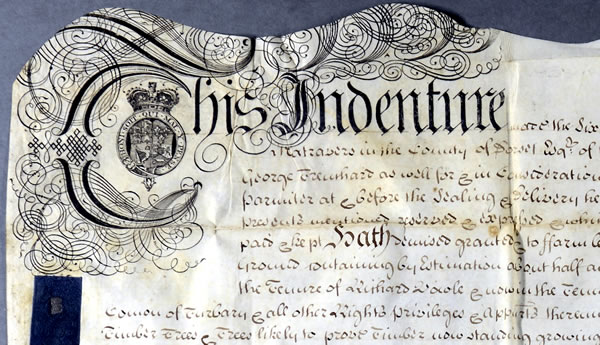 This Indenture made the Six
Matravers in the County of Dorset Esqr. of
George Trenchard as well for & in Consideration
parmiter at & before the Sealing & Delivery he
presents mentioned reserved & expressed & which
paid & kept Hath demised granted & to ffarm le
Ground containing by Estimation about half a
the Tenure of Richard & now in the Tenu
Comon of Turbary & all other Rights Priviledges & Apptts thereun
Timber Trees & Trees likely to prove Timber now standing growing